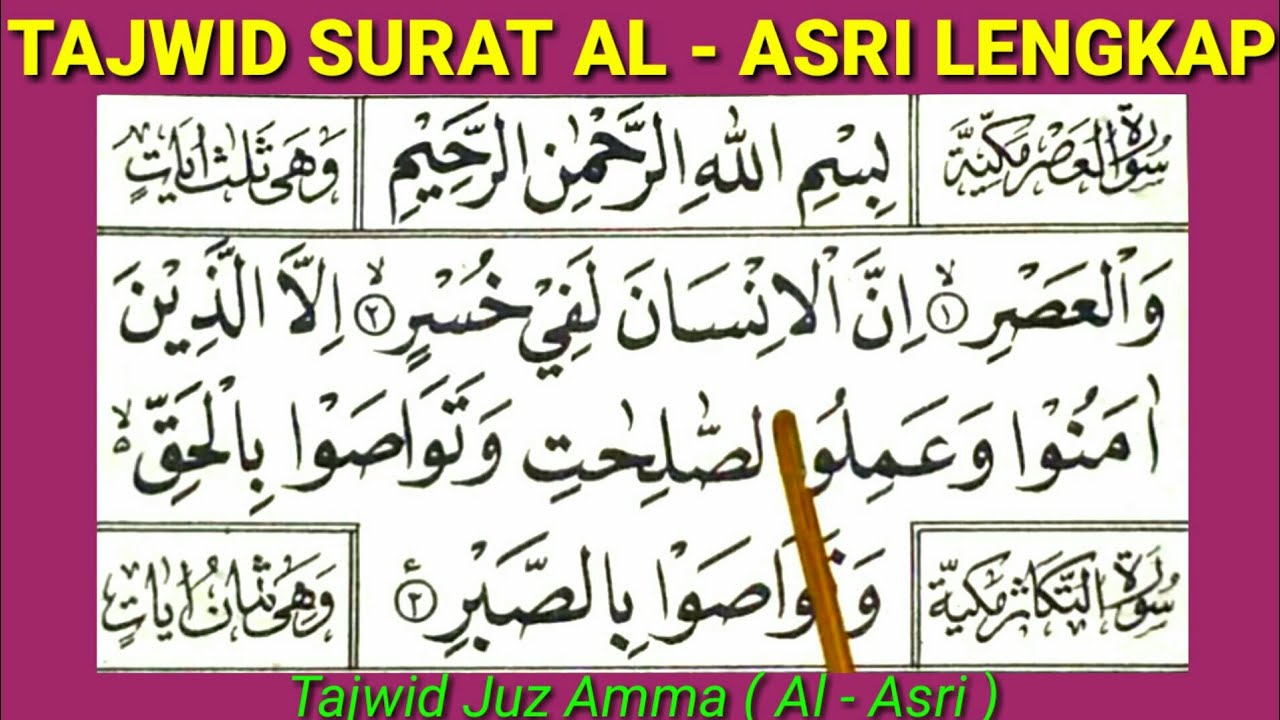 TAJWID SURAT AL - ASRI LENGKAP
سُوْرَةُ الْعَصْرِ مَكِّيَّةٌ
بِسْمِ اللهِ الرَّحْمٰنِ الرَّحِيْمِ
وَهِىَ ثَلٰثُ اٰيَاتٍ
وَالْعَصْرِ ۙ﴿١﴾ اِنَّ الْاِنْسَانَ لَفِيْ خُسْرٍ ۙ﴿٢﴾ اِلَّا الَّذِيْنَ
اٰمَنُوْا وَعَمِلُوا الصّٰلِحٰتِ وَتَوَاصَوْا بِالْحَقِّ ۙ
وَتَوَاصَوْا بِالصَّبْرِ ﴿٣﴾
سُوْرَةُ التَّكَاثُرِ مَكِّيَّةٌ
وَهِىَ ثَمَانُ اٰيَاتٍ
Tajwid Juz Amma ( Al - Asri )